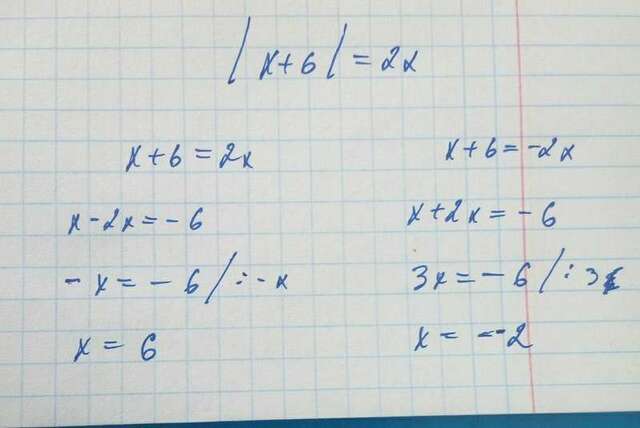 |x+6| = 2x
x+6 = 2x
x+6 = -2x
x-2x = -6
x+2x = -6
-x = -6 /:-x
3x = -6 /:3
x = 6
x = --2